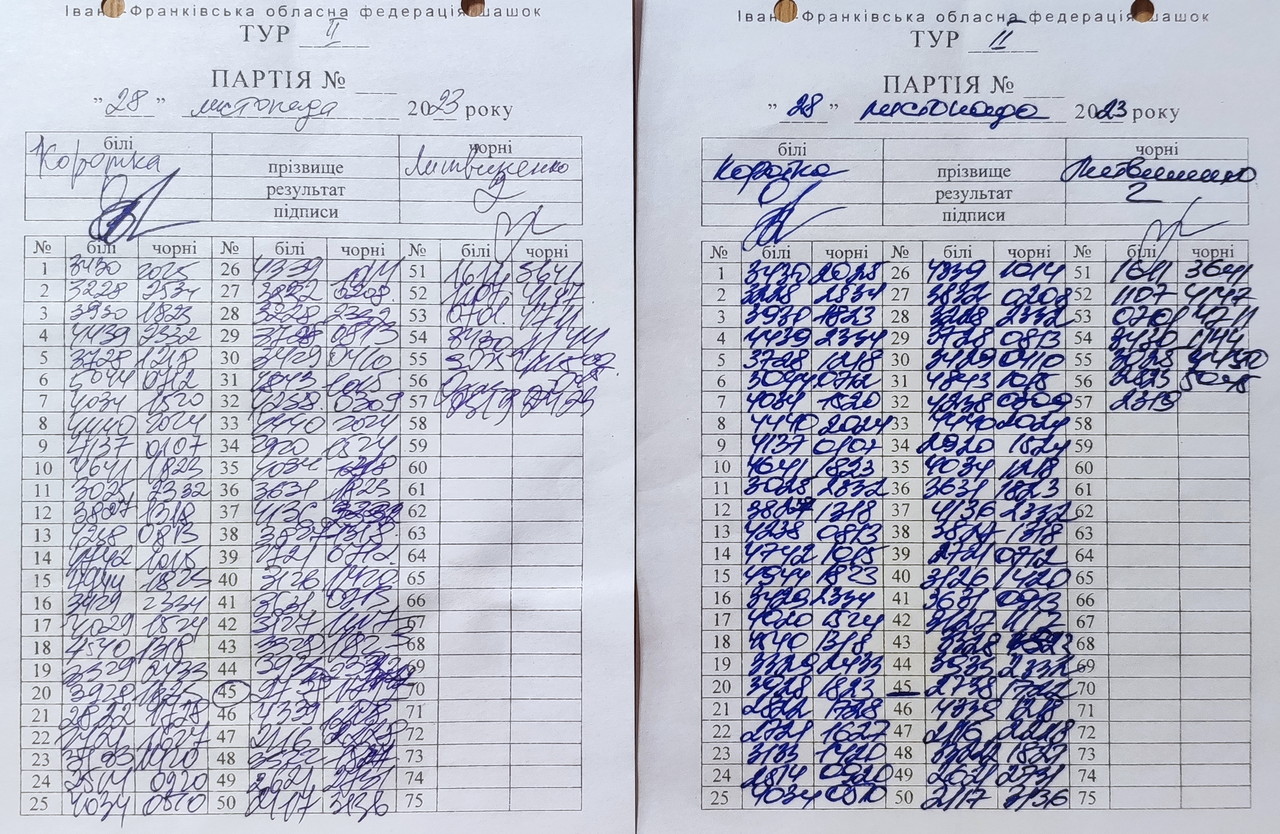 Івано-Франківська обласна федерація шашок
ТУР II
ПАРТІЯ №
" 28 " листопада 2023 року
білі чорні
Коротка прізвище Литвиненко
результат 2
підписи
№ білі чорні № білі чорні № білі чорні
1 3430 2025 26 4339 1014 51 1611 3641
2 3228 2534 27 3832 0208 52 1107 4147
3 3930 1823 28 3228 2332 53 0701 4741
4 4439 2332 29 3728 0813 54 3430
5 3728 1218 30 3429 0410 55
6 5044 0712 31 4843 1015 56
7 4034 1520 32 4238 0309 57
8 4440 2024 33 4440 2024 58
9 4137 0107 34 2920 1524 59
10 4641 1823 35 4034 1218 60
11 3025 2332 36 3631 1823 61
12 3827 1318 37 4136 62
13 4238 0813 38 3827 1318 63
14 4742 1015 39 2721 0712 64
15 4944 1823 40 3126 1420 65
16 3429 2334 41 3631 0913 66
17 4029 1524 42 3127 1117 67
18 4540 1318 43 3328 68
19 3329 2433 44 3933 69
20 3928 1823 45 2738 70
21 2822 1728 46 4339 71
22 2721 1627 47 2116 72
23 3133 1420 48 1827 73
24 2514 0920 49 2621 2731 74
25 4034 0510 50 2117 3136 75
Івано-Франківська обласна федерація шашок
ТУР II
ПАРТІЯ №
" 28 " листопада 2023 року
білі чорні
Коротка прізвище Литвиненко
результат 2
підписи
№ білі чорні № білі чорні № білі чорні
1 3430 2025 26 4339 1014 51 1611 3641
2 3228 2534 27 3832 0208 52 1107 4147
3 3930 1823 28 3228 2332 53 0701
4 4439 2334 29 3728 0813 54 3430
5 3728 1218 30 3429 0410 55
6 5044 0712 31 4843 1015 56
7 4034 1520 32 4238 0309 57 2319
8 4440 2024 33 4440 2024 58
9 4137 0107 34 2920 1524 59
10 4641 1823 35 4034 1218 60
11 3025 2332 36 3631 1823 61
12 3827 1318 37 4136 2332 62
13 4238 0813 38 3827 1318 63
14 4742 1015 39 2721 0712 64
15 4944 1823 40 3126 1420 65
16 3429 2334 41 3631 0913 66
17 4020 1524 42 3127 1117 67
18 4540 1318 43 3328 68
19 3329 2433 44 3933 2332 69
20 3928 1823 45 2738 1722 70
21 2822 1728 46 4339 1218 71
22 2721 1627 47 2116 2228 72
23 3133 1420 48 1827 73
24 2514 0920 49 2621 2731 74
25 4034 0510 50 2117 3136 75